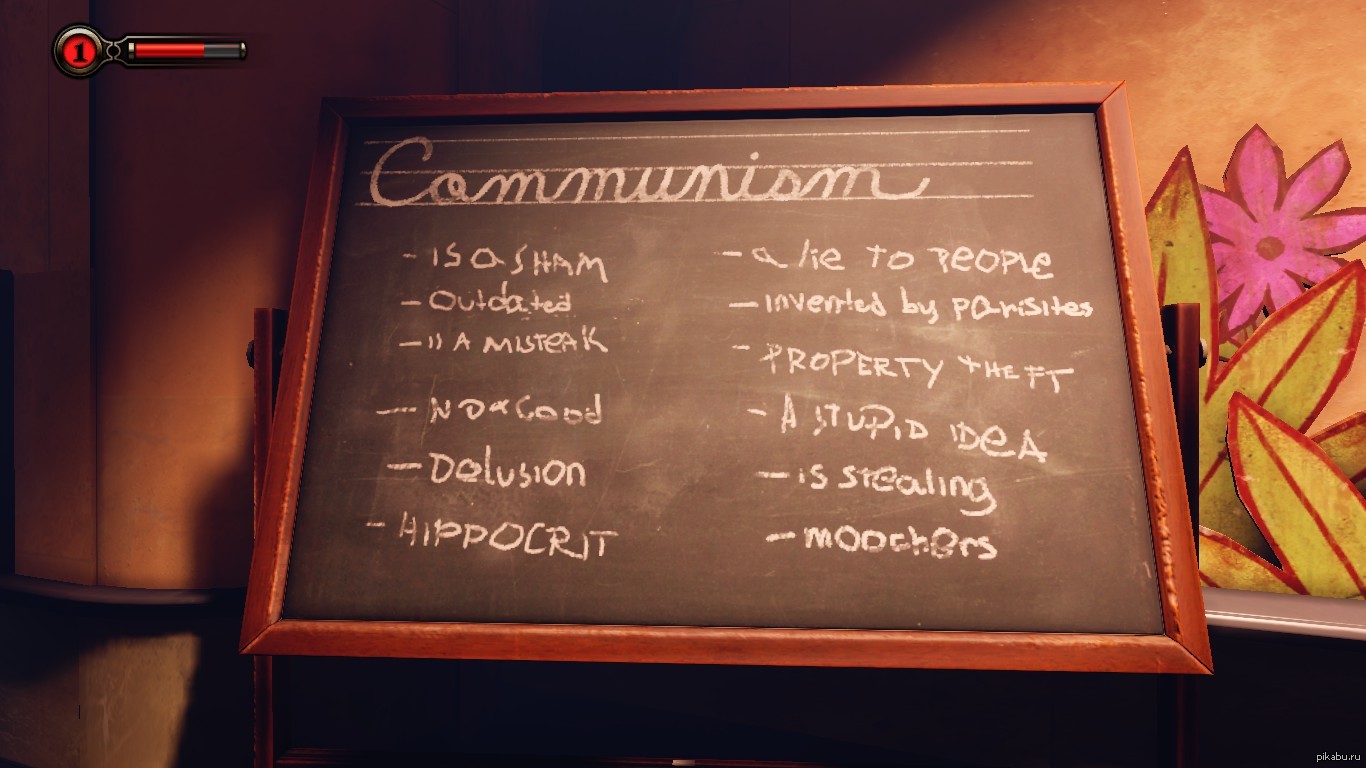 1
Communism
- IS A SHAM
- Outdated
- IS A MISTEAK
- NO GOOD
- Delusion
- HIPPOCRIT
- a lie to PEOPLE
- invented by parisites
- PROPERTY tHEFT
- A STUPID IDeA
- is stealing
- moochers
pikabu.ru